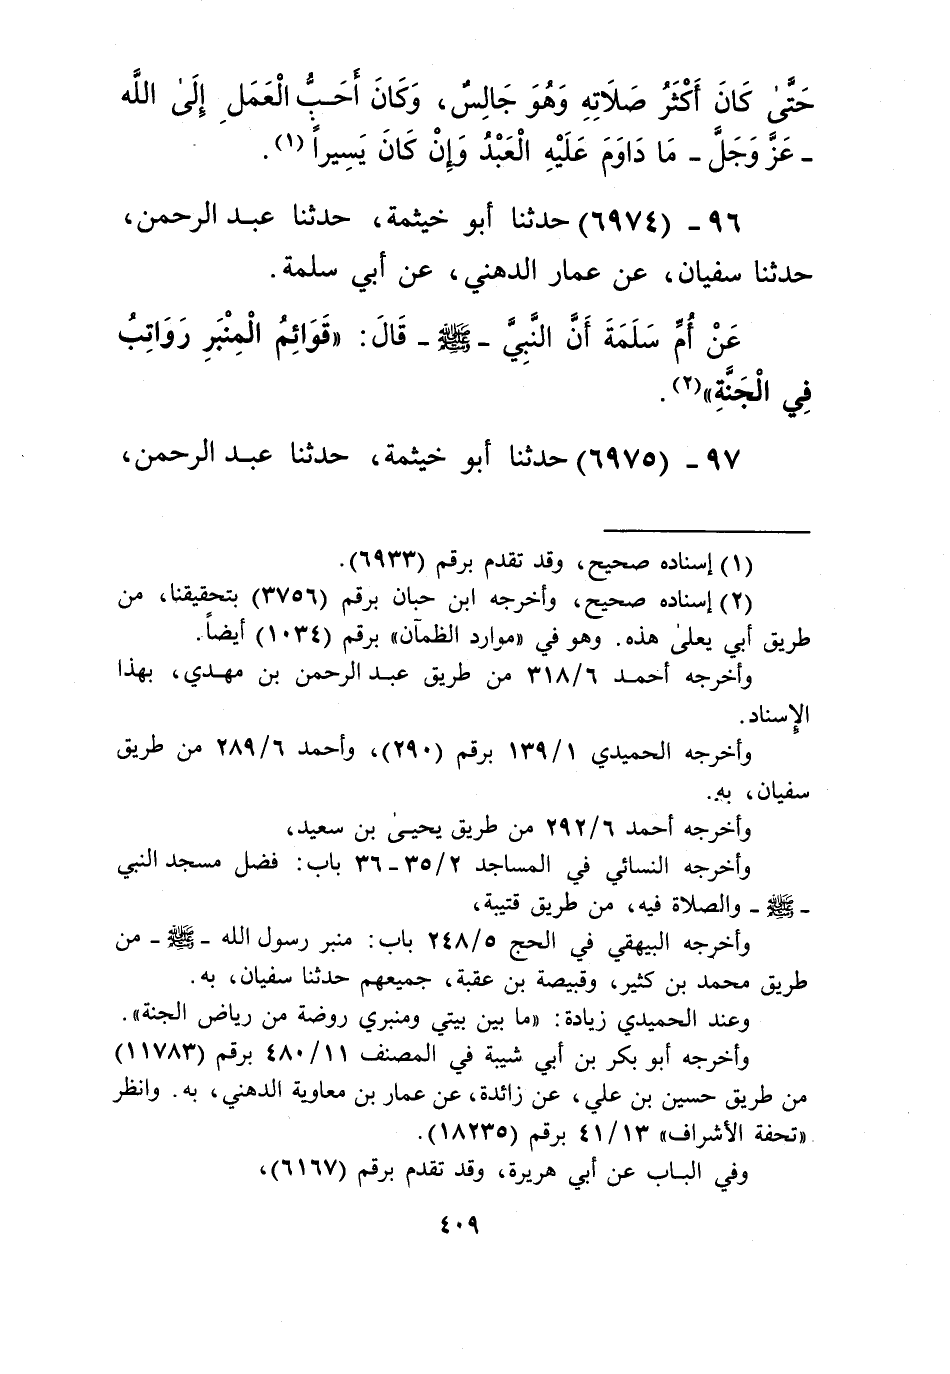 حَتَّىٰ كَانَ أَكْثَرُ صَلَاتِهِ وَهُوَ جَالِسٌ، وَكَانَ أَحَبُّ الْعَمَلِ إِلَىٰ اللَّه
ـ عَزَّ وَجَلَّ ـ مَا دَاوَمَ عَلَيْهِ الْعَبْدُ وَإِنْ كَانَ يَسِيراً (١).
٩٦ ـ (٦٩٧٤) حدثنا أبو خيثمة، حدثنا عبد الرحمن،
حدثنا سفيان، عن عمار الدهني، عن أبي سلمة.
عَنْ أُمِّ سَلَمَةَ أَنَّ النَّبِيَّ ـ ﷺ ـ قَالَ: «قَوَائِمُ الْمِنْبَرِ رَوَاتِبُ
فِي الْجَنَّةِ»(٢).
٩٧ ـ (٦٩٧٥) حدثنا أبو خيثمة، حدثنا عبد الرحمن،
(١) إسناده صحيح، وقد تقدم برقم (٦٩٣٣).
(٢) إسناده صحيح، وأخرجه ابن حبان برقم (٣٧٥٦) بتحقيقنا، من
طريق أبي يعلىٰ هذه. وهو في «موارد الظمآن» برقم (١٠٣٤) أيضاً.
وأخرجه أحمد ٣١٨/٦ من طريق عبد الرحمن بن مهدي، بهذا
الإسناد.
وأخرجه الحميدي ١٣٩/١ برقم (٢٩٠)، وأحمد ٢٨٩/٦ من طريق
سفيان، به.
وأخرجه أحمد ٢٩٢/٦ من طريق يحيىٰ بن سعيد،
وأخرجه النسائي في المساجد ٣٥/٢ـ٣٦ باب: فضل مسجد النبي
ـ ﷺ ـ والصلاة فيه، من طريق قتيبة،
وأخرجه البيهقي في الحج ٢٤٨/٥ باب: منبر رسول الله ـ ﷺ ـ من
طريق محمد بن كثير، وقبيصة بن عقبة، جميعهم حدثنا سفيان، به.
وعند الحميدي زيادة: «ما بين بيتي ومنبري روضة من رياض الجنة».
وأخرجه أبو بكر بن أبي شيبة في المصنف ٤٨٠/١١ برقم (١١٧٨٣)
من طريق حسين بن علي، عن زائدة، عن عمار بن معاوية الدهني، به. وانظر
«تحفة الأشراف» ٤١/١٣ برقم (١٨٢٣٥).
وفي الباب عن أبي هريرة، وقد تقدم برقم (٦١٦٧)،
٤٠٩